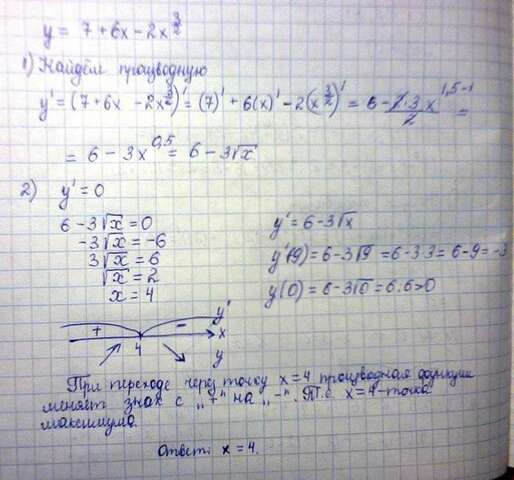 y = 7 + 6x - 2x^(3/2)
1) Найдём производную
y' = (7 + 6x - 2x^(3/2))' = (7)' + 6(x)' - 2(x^(3/2))' = 6 - (2·3x^(1,5-1))/2 =
= 6 - 3x^(0,5) = 6 - 3√x
2) y' = 0
6 - 3√x = 0
-3√x = -6
3√x = 6
√x = 2
x = 4
y' = 6 - 3√x
y'(9) = 6 - 3√9 = 6 - 3·3 = 6 - 9 = -3
y(0) = 6 - 3√0 = 6. 6>0
+ - y'
4 x
y
При переходе через точку x = 4 производная функции
меняет знак с „+" на „-". Т.е. x = 4 - точка
максимума.
Ответ: x = 4.